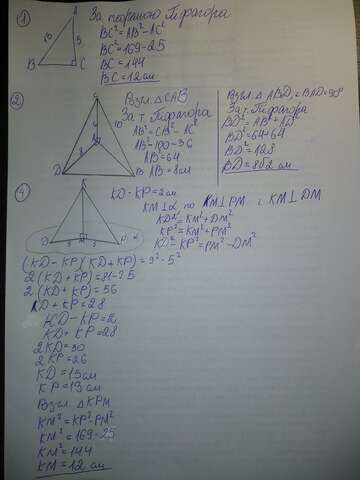 1
За теоремою Піфагора
BC²=AB²-AC²
BC²=169-25
BC²=144
BC=12см
A
5
B
C
2
Розгл. △CAB
За т. Піфагора
AB²=CB²-AC²
AB²=100-36
AB=64
AB=8см
C
10
8
A
D
B
Розгл. △ ABD, ∠BAD=90°
За т. Піфагора
BD²=AB²+AD²
BD²=64+64
BD²=128
BD=8√2 см
4
K
D
M
P
KD-KP=2см
KM⊥α, то KM⊥PM і KM⊥DM
KD²=KM²+DM²
KP²=KM²+PM²
KD²-KP²=PM²-DM²
(KD-KP)(KD+KP)=9²-5²
2(KD+KP)=81-25
2(KD+KP)=56
KD+KP=28
KD-KP=2
KD+KP=28
2KD=30
2KP=26
KD=15см
KP=13см
Розгл. △KPM
KM²=KP²-PM²
KM²=169-25
KM²=144
KM=12 см